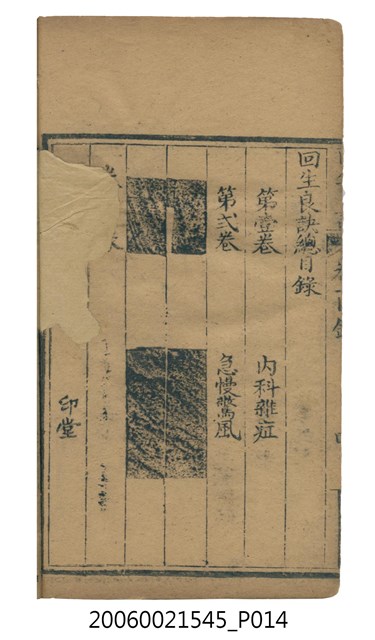 回生良訣總目錄
第壹卷 內科雜症
第弍卷 急慢驚風
印堂
20060021545_P014